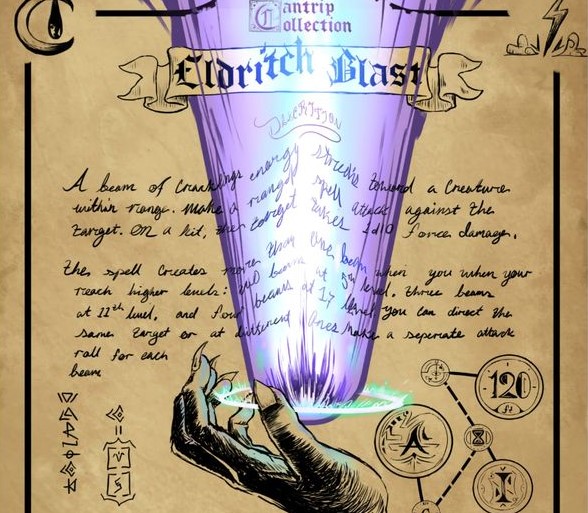 Cantrip
Collection
Eldritch Blast
A beam of Crackling energy streaks toward a Creature
within range. Make a ranged spell attack against the
target. On a hit, the target takes 1d10 force damage.
the spell creates more than one beam when you when your
reach higher levels: two beams at 5th level, three beams
at 11th level, and four beams at 17 level, you can direct the
same target or at different ones Make a seperate attack
roll for each
beam
120
ft
V
S
I